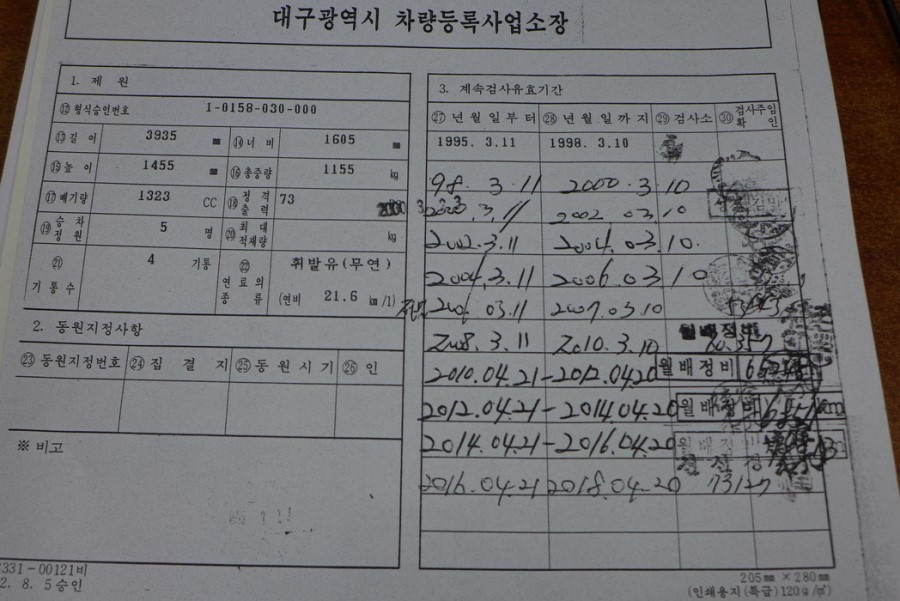 대구광역시 차량등록사업소장
1. 제 원
⑫ 형식승인번호 1-0158-030-000
⑬ 길 이 3935 ㎜ ⑭ 너 비 1605 ㎜
⑮ 높 이 1455 ㎜ ⑯ 총중량 1155 ㎏
⑰ 배기량 1323 CC ⑱ 정 격 출 력 73
⑲ 승 차 정 원 5 명 ⑳ 최 대 적재량 ㎏
㉑ 기 통 수 4 기통 ㉒ 연 료 의 종 류 휘발유(무연)
(연비 21.6 ㎞/l)
2. 동원지정사항
㉓ 동원지정번호 ㉔ 집 결 지 ㉕ 동 원 시 기 ㉖ 인
※ 비고
331-00121비
2. 8. 5 승인
3. 계속검사유효기간
㉗ 년 월 일 부 터 ㉘ 년 월 일 까 지 ㉙ 검 사 소 ㉚ 검사주임 확 인
1995. 3.11 1998. 3.10
98. 3. 11 2000. 3. 10
3. 11 2002 03. 10
2002. 3. 11 2004. 03. 10.
2004. 3. 11 2006. 03 10
03. 11 2007. 03. 10
2008. 3. 11 2010. 3. 10 월배정비
2010.04.21-2012.04.20 월배정비
2012.04.21-2014.04.20 월배정비 km
2014.04.21-2016.04.20 월배정비
2016.04.21 2018.04-20 73127
205㎜×280㎜
(인쇄용지(특급)120g/㎡)